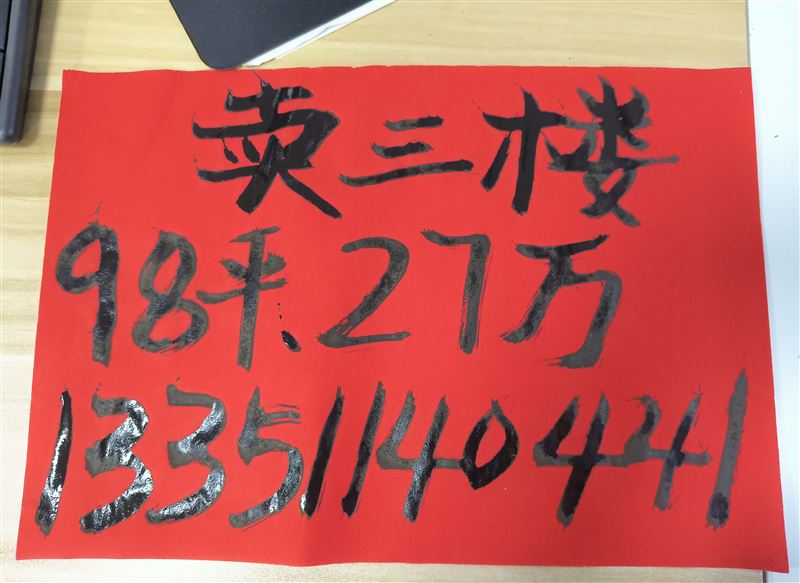 卖三楼
98平、27万
13351140441